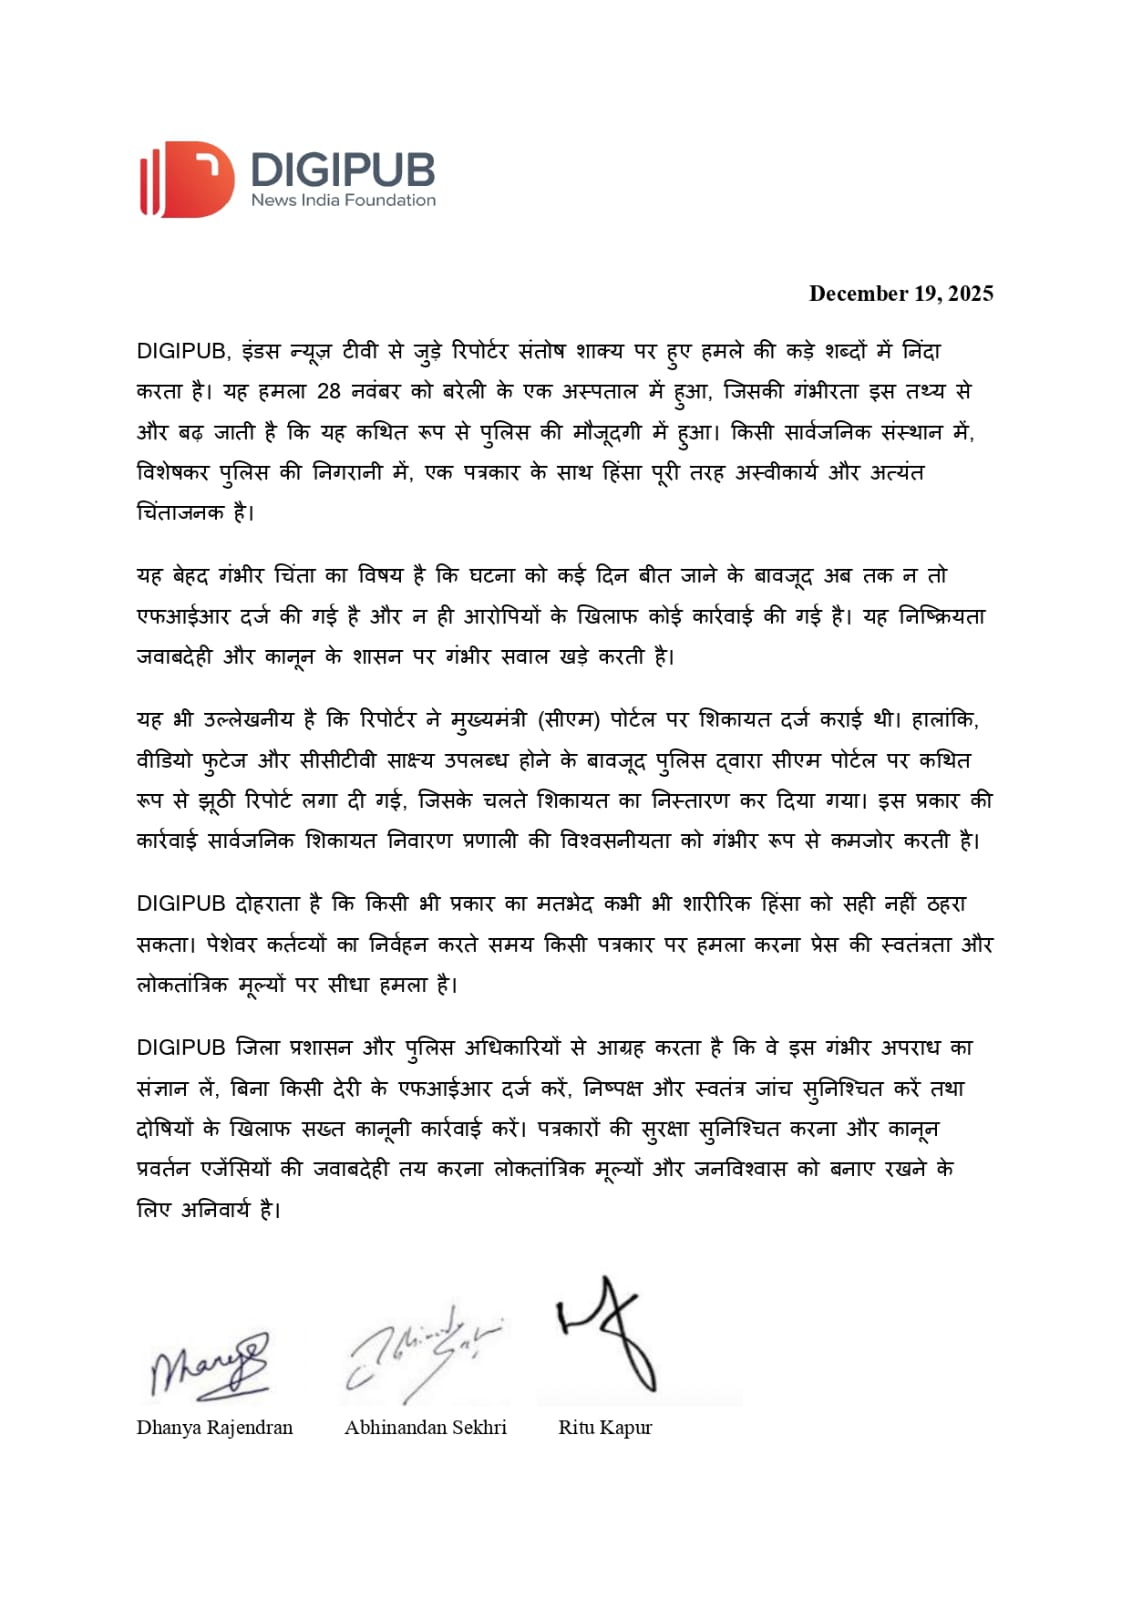 DIGIPUB
News India Foundation
December 19, 2025
DIGIPUB, इंडस न्यूज़ टीवी से जुड़े रिपोर्टर संतोष शाक्य पर हुए हमले की कड़े शब्दों में निंदा
करता है। यह हमला 28 नवंबर को बरेली के एक अस्पताल में हुआ, जिसकी गंभीरता इस तथ्य से
और बढ़ जाती है कि यह कथित रूप से पुलिस की मौजूदगी में हुआ। किसी सार्वजनिक संस्थान में,
विशेषकर पुलिस की निगरानी में, एक पत्रकार के साथ हिंसा पूरी तरह अस्वीकार्य और अत्यंत
चिंताजनक है।
यह बेहद गंभीर चिंता का विषय है कि घटना को कई दिन बीत जाने के बावजूद अब तक न तो
एफआईआर दर्ज की गई है और न ही आरोपियों के खिलाफ कोई कार्रवाई की गई है। यह निष्क्रियता
जवाबदेही और कानून के शासन पर गंभीर सवाल खड़े करती है।
यह भी उल्लेखनीय है कि रिपोर्टर ने मुख्यमंत्री (सीएम) पोर्टल पर शिकायत दर्ज कराई थी। हालांकि,
वीडियो फुटेज और सीसीटीवी साक्ष्य उपलब्ध होने के बावजूद पुलिस द्वारा सीएम पोर्टल पर कथित
रूप से झूठी रिपोर्ट लगा दी गई, जिसके चलते शिकायत का निस्तारण कर दिया गया। इस प्रकार की
कार्रवाई सार्वजनिक शिकायत निवारण प्रणाली की विश्वसनीयता को गंभीर रूप से कमजोर करती है।
DIGIPUB दोहराता है कि किसी भी प्रकार का मतभेद कभी भी शारीरिक हिंसा को सही नहीं ठहरा
सकता। पेशेवर कर्तव्यों का निर्वहन करते समय किसी पत्रकार पर हमला करना प्रेस की स्वतंत्रता और
लोकतांत्रिक मूल्यों पर सीधा हमला है।
DIGIPUB जिला प्रशासन और पुलिस अधिकारियों से आग्रह करता है कि वे इस गंभीर अपराध का
संज्ञान लें, बिना किसी देरी के एफआईआर दर्ज करें, निष्पक्ष और स्वतंत्र जांच सुनिश्चित करें तथा
दोषियों के खिलाफ सख्त कानूनी कार्रवाई करें। पत्रकारों की सुरक्षा सुनिश्चित करना और कानून
प्रवर्तन एजेंसियों की जवाबदेही तय करना लोकतांत्रिक मूल्यों और जनविश्वास को बनाए रखने के
लिए अनिवार्य है।
Dhanya Rajendran Abhinandan Sekhri Ritu Kapur